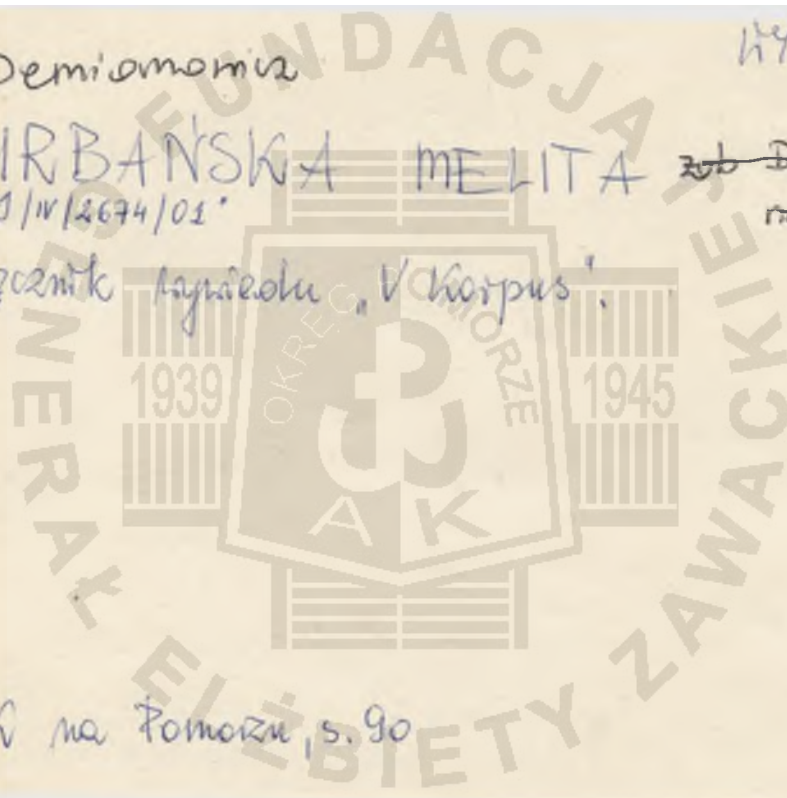 Demianowicz
IRBAŃSKA MELITA zob
/IV/2674/01
ęcznik wywiadu „V Korpus".
na Pomorzu, s. 90
FUNDACJA
GENERAŁ ELŻBIETY ZAWACKIEJ
OKRĘG POMORZE
1939
1945
AK